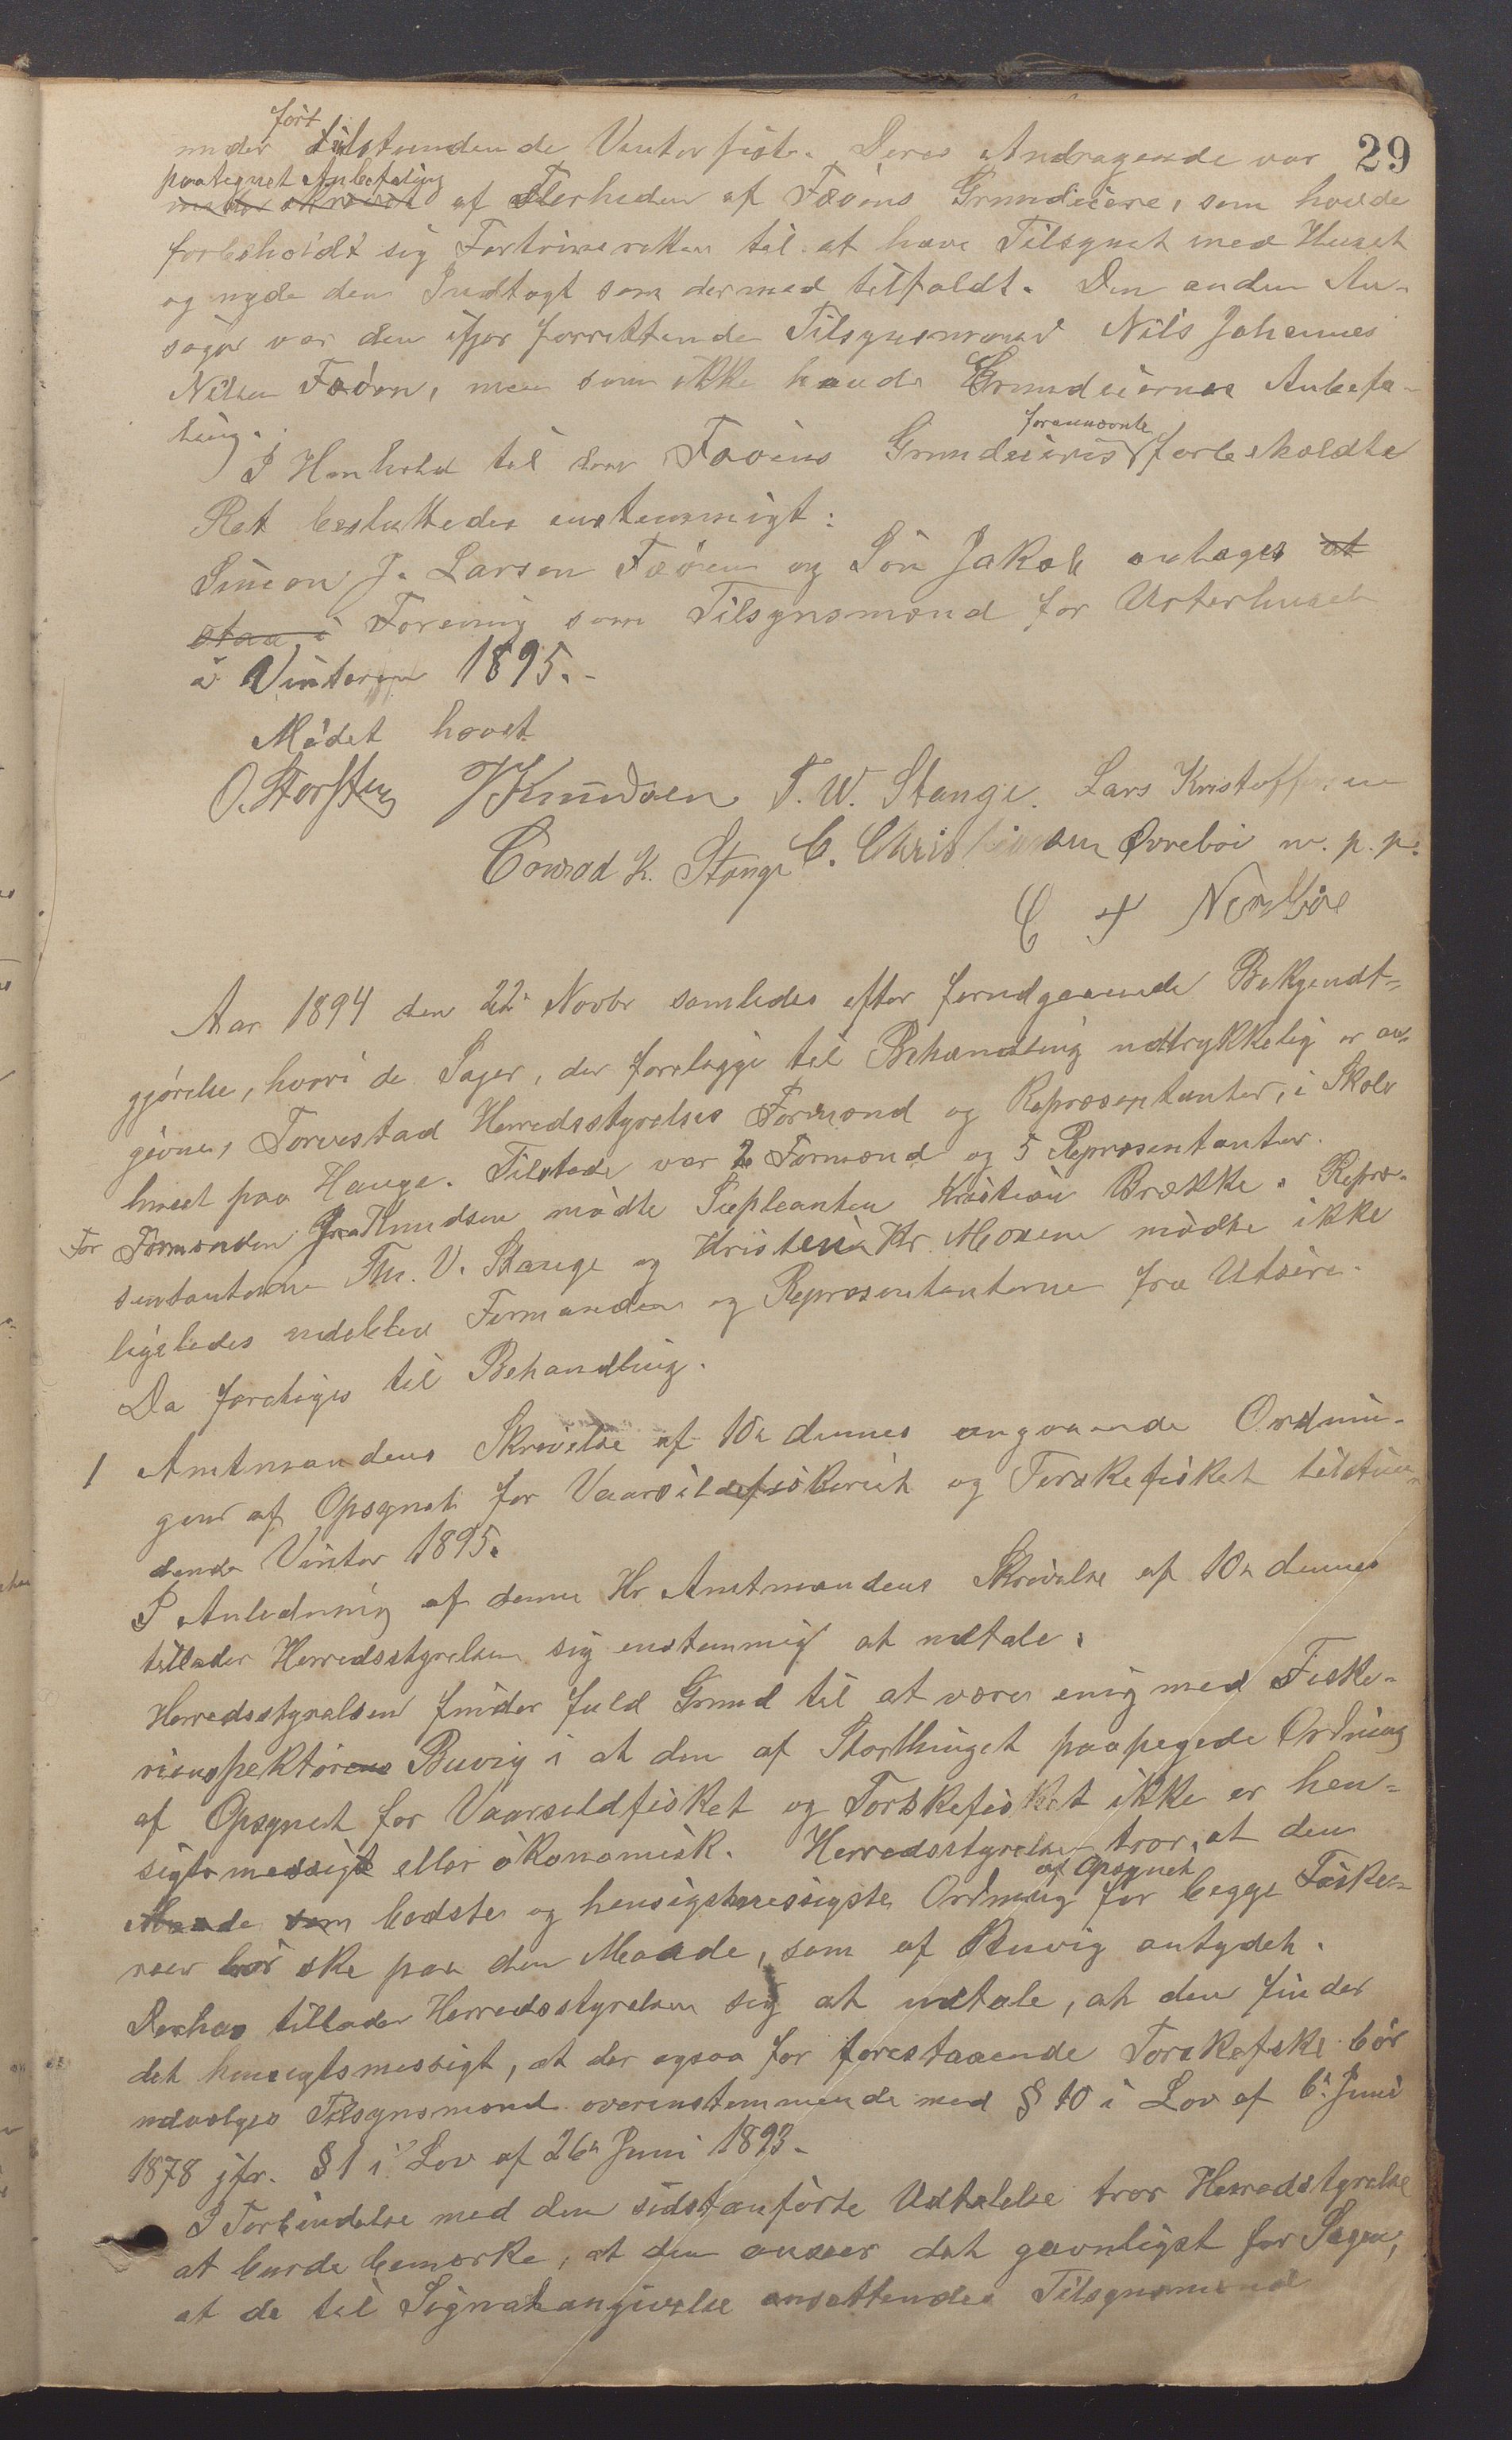 29
under ført tilstundende Vinterfiske. Deres Andragende var
paategnet Anbefaling af Flerheden af Føøens Grundeiere, som havde
forbeholdt sig Fortrinsretten til at have Tilsynet med Huset
og nyde den Indtægt som dermed tilfaldt. Den anden An-
søger var den ifjor forrettende Tilsynsmand Nils Johannes
Nilsen Fæøen, men som ikke havde Grundeiernes Anbefa-
ling.
I Henhold til den Fæøens Grundeieres forannævnte forbeholdte
Ret besluttedes enstemmigt:
Simon J. Larsen Fæøen og Søn Jakob antages at
staa i Forening som Tilsynsmænd for Vorterhuset
i Vinteren 1895.-
Mødet hævet
O. Storsten J Knudsen T. W. Stange. Lars Kristoffersen
Conrad K. Stange C. Christiansen Øvrebøi m. p. p.
C F Nordbøe
Aar 1894 den 22de Novbr samledes efter forudgaaende Bekjendt-
gjørelse, hvori de Sager, der foreligge til Behandling udtrykkelig er an-
givne, Torvestad Herredsstyrelses Formænd og Repræsentanter, i Skole
huset paa Hauge. Tilstede var 2 Formænd og 5 Repræsentanter.
For Formanden Knudsen mødte Supleanten Kristian Brække. Repræ-
sentanterne Th. V. Stange og Kristen Kr. Moxene mødte ikke
ligeledes udeblev Formanden og Repræsentanterne fra Utsire.
Da foretoges til Behandling.
1 Amtmandens Skrivelse af 10de dennes angaaende Ordnin-
gen af Opsynet for Vaarsildfiskeriet og Torskefisket tilstun-
dende Vinter 1895.
I Anledning af denne Hr Amtmandens Skrivelse af 10de dennes
tillader Herredsstyrelsen sig enstemmig at udtale:
Herredsstyrelsen finder fuld Grund til at være enig med Fiske-
riinspektørens Buvig i at den af Storthinget paapegede Ordning
af Opsynet for Vaarsildfisket og Torskefisket ikke er hen-
sigtsmessigt eller økonomisk. Herredsstyrelsen tror, at den
Maade som bedste og hensigtsmessigste Ordning af Opsynet for begge Fiske-
rier bør ske paa den Maade, som af Buvig antydet.
Derhos tillader Herredsstyrelsen sig at udtale, at den finder
det hensigtsmessigt, at der ogsaa for forestaaende Torskefiske bør
udvælges Tilsynsmænd overenstemmende med § 10 i Lov af 6te Juni
1878 jfr. § 1 i Lov af 26de Juni 1893.
I Forbindelse med den sidstanførte Udtalelse tror Herredstyrelse
at burde bemærke, at den anseer det gavnligst for Sagen,
at de til Signalangivelse ansættendes Tilsynsmænd